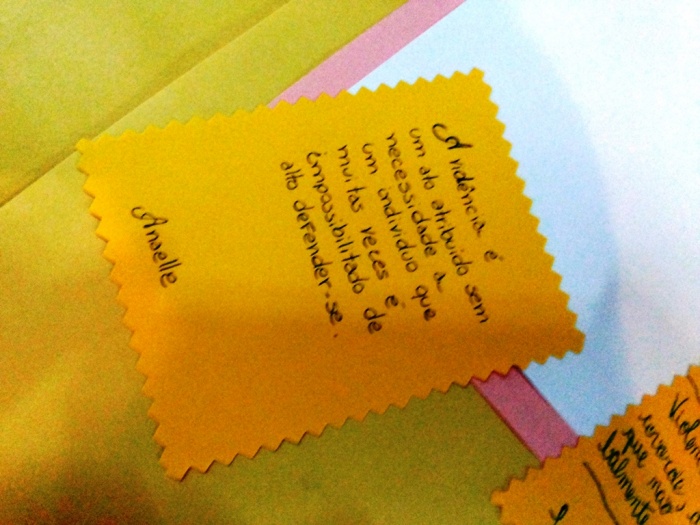 A violência é
um ato atribuido sem
necessidade a
um individuo que
muitas vezes é
impossibilitado de
alto defender-se.
Anaelle
que mao